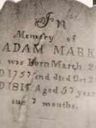 In
Memory of
ADAM MARK
was Born March 2
D 1757 and died Oct 2
D 1815 Aged 57 year
7 months.